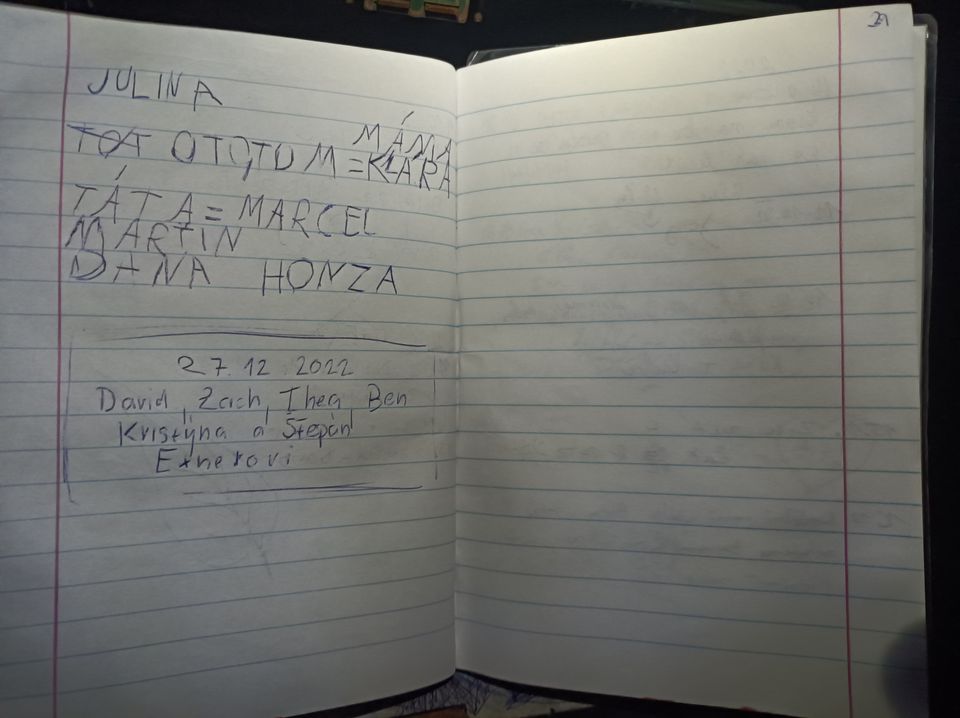 29
JULINA
TOT OTOTO M = MÁMA
KLÁRA
TÁTA = MARCEL
MARTIN
DANA HONZA
27.12.2022
David, Zach, Thea, Ben
Kristýna a Štěpán
Exnerovi